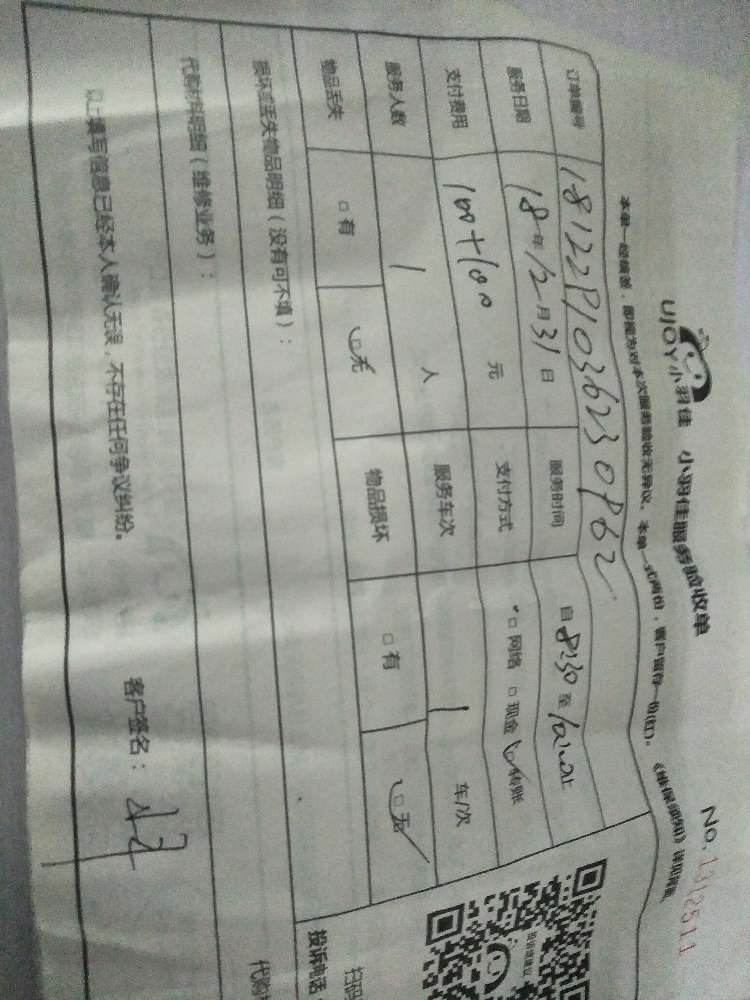 UJOY小羽佳 小羽佳服务验收单
No. 1312511
本单一经签署，即视为对本次服务验收无异议。本单一式两份，客户留存一份(红)。《维保须知》详见背面
订单编号
服务日期 18年12月31日 服务时间 自8:30至
支付费用 100+100 元 支付方式 □网络 □现金 □转账
服务人数 1 人 服务车次 1 车/次
物品丢失 □有 □无 物品损坏 □有 □无
损坏或丢失物品明细（没有可不填）：
代购材料明细（维修业务）：
以上填写信息已经本人确认无误，不存在任何争议纠纷。
客户签名：
扫码
投诉电话：
代购材